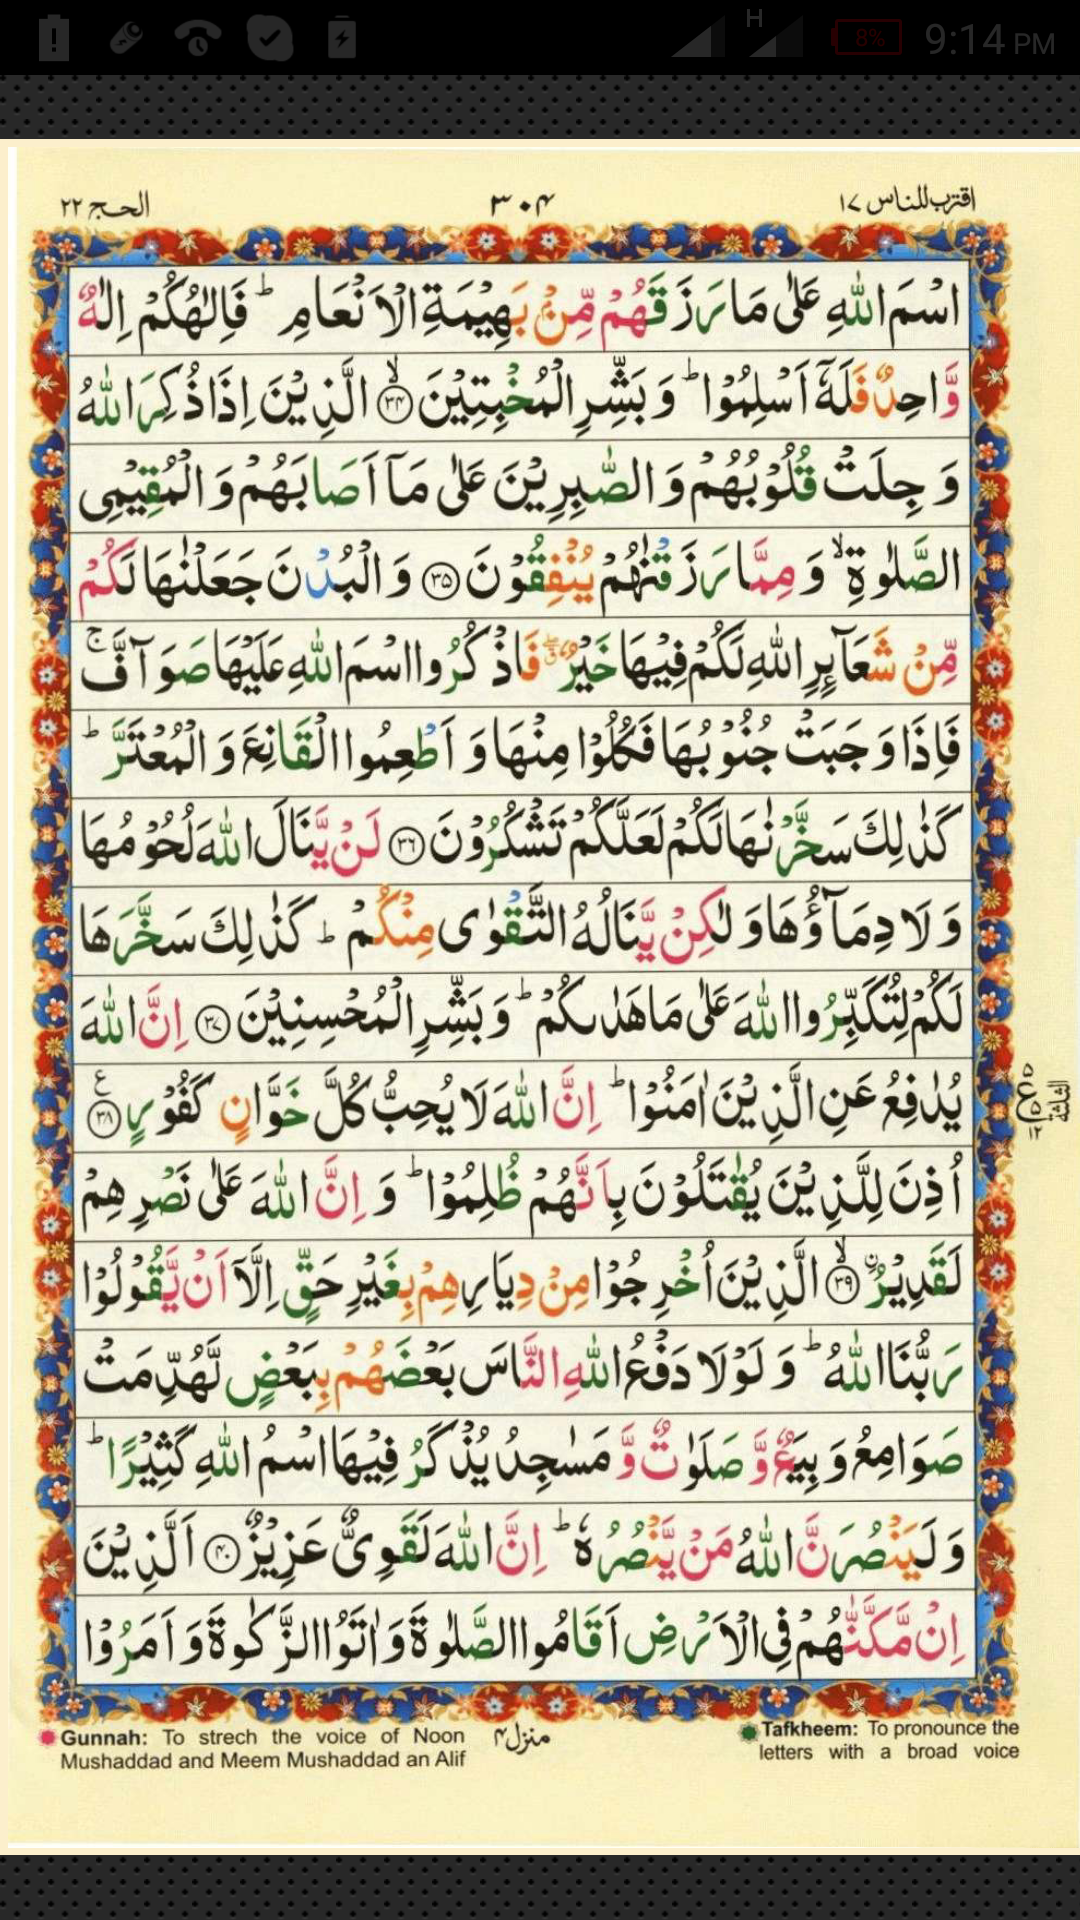 H 8% 9:14 PM
اقترب للناس ۱۷ ۳۰۴ الحج ۲۲
اسْمَ اللّٰهِ عَلٰی مَا رَزَقَهُمْ مِّنْۢ بَهِیْمَةِ الْاَنْعَامِ ؕ فَاِلٰهُكُمْ اِلٰهٌ
وَّاحِدٌ فَلَهٗۤ اَسْلِمُوْا ؕ وَ بَشِّرِ الْمُخْبِتِیْنَ ۙ﴿۳۴﴾ الَّذِیْنَ اِذَا ذُكِرَ اللّٰهُ
وَ جِلَتْ قُلُوْبُهُمْ وَ الصّٰبِرِیْنَ عَلٰی مَاۤ اَصَابَهُمْ وَ الْمُقِیْمِی
الصَّلٰوةِ ۙ وَ مِمَّا رَزَقْنٰهُمْ یُنْفِقُوْنَ ﴿۳۵﴾ وَ الْبُدْنَ جَعَلْنٰهَا لَكُمْ
مِّنْ شَعَآىِٕرِ اللّٰهِ لَكُمْ فِیْهَا خَیْرٌ ۖۗ فَاذْكُرُوا اسْمَ اللّٰهِ عَلَیْهَا صَوَآفَّ ۚ
فَاِذَا وَجَبَتْ جُنُوْبُهَا فَكُلُوْا مِنْهَا وَ اَطْعِمُوا الْقَانِعَ وَ الْمُعْتَرَّ ؕ
كَذٰلِكَ سَخَّرْنٰهَا لَكُمْ لَعَلَّكُمْ تَشْكُرُوْنَ ﴿۳۶﴾ لَنْ یَّنَالَ اللّٰهَ لُحُوْمُهَا
وَ لَا دِمَآؤُهَا وَ لٰكِنْ یَّنَالُهُ التَّقْوٰی مِنْكُمْ ؕ كَذٰلِكَ سَخَّرَهَا
لَكُمْ لِتُكَبِّرُوا اللّٰهَ عَلٰی مَا هَدٰىكُمْ ؕ وَ بَشِّرِ الْمُحْسِنِیْنَ ﴿۳۷﴾ اِنَّ اللّٰهَ
یُدٰفِعُ عَنِ الَّذِیْنَ اٰمَنُوْا ؕ اِنَّ اللّٰهَ لَا یُحِبُّ كُلَّ خَوَّانٍ كَفُوْرٍ ﴿۳۸﴾ ع
اُذِنَ لِلَّذِیْنَ یُقٰتَلُوْنَ بِاَنَّهُمْ ظُلِمُوْا ؕ وَ اِنَّ اللّٰهَ عَلٰی نَصْرِهِمْ
لَقَدِیْرُ ۣۙ﴿۳۹﴾ الَّذِیْنَ اُخْرِجُوْا مِنْ دِیَارِهِمْ بِغَیْرِ حَقٍّ اِلَّاۤ اَنْ یَّقُوْلُوْا
رَبُّنَا اللّٰهُ ؕ وَ لَوْ لَا دَفْعُ اللّٰهِ النَّاسَ بَعْضَهُمْ بِبَعْضٍ لَّهُدِّمَتْ
صَوَامِعُ وَ بِیَعٌ وَّ صَلَوٰتٌ وَّ مَسٰجِدُ یُذْكَرُ فِیْهَا اسْمُ اللّٰهِ كَثِیْرًا ؕ
وَ لَیَنْصُرَنَّ اللّٰهُ مَنْ یَّنْصُرُهٗ ؕ اِنَّ اللّٰهَ لَقَوِیٌّ عَزِیْزٌ ﴿۴۰﴾ اَلَّذِیْنَ
اِنْ مَّكَّنّٰهُمْ فِی الْاَرْضِ اَقَامُوا الصَّلٰوةَ وَ اٰتَوُا الزَّكٰوةَ وَ اَمَرُوْا
۵ ع ۵ ۱۲ الثلثة
Gunnah: To strech the voice of Noon
Mushaddad and Meem Mushaddad an Alif
منزل ۴
Tafkheem: To pronounce the
letters with a broad voice